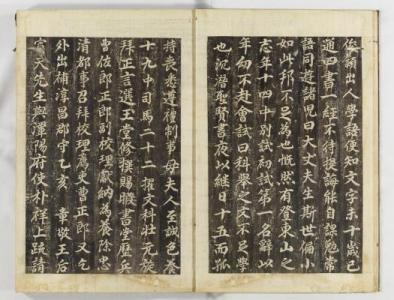 俊穎出人學語便知文字未十歲已
通四書一經不待提誨能自課勉常
語同遊諸兒曰大丈夫生斯世偏小
如此邦不足爲也慨然有登東山之
志年十四中別試初試第一名辭以
年幼不赴會試曰科擧之文不足學
也沉潛聖賢書夜以繼日十五而孤
持喪悉遵禮制事母夫人至誠色養
十九中司馬二十二擢文科壯元旋
拜正言選玉堂修撰賜暇書堂歷兵
曹佐郎正郎副校理獻納爲養除忠
清都事召拜校理爲吏曹正郎又乞
外出補淳昌郡守乙亥 章敬王后
天先生與潭陽府使朴祥上疏請